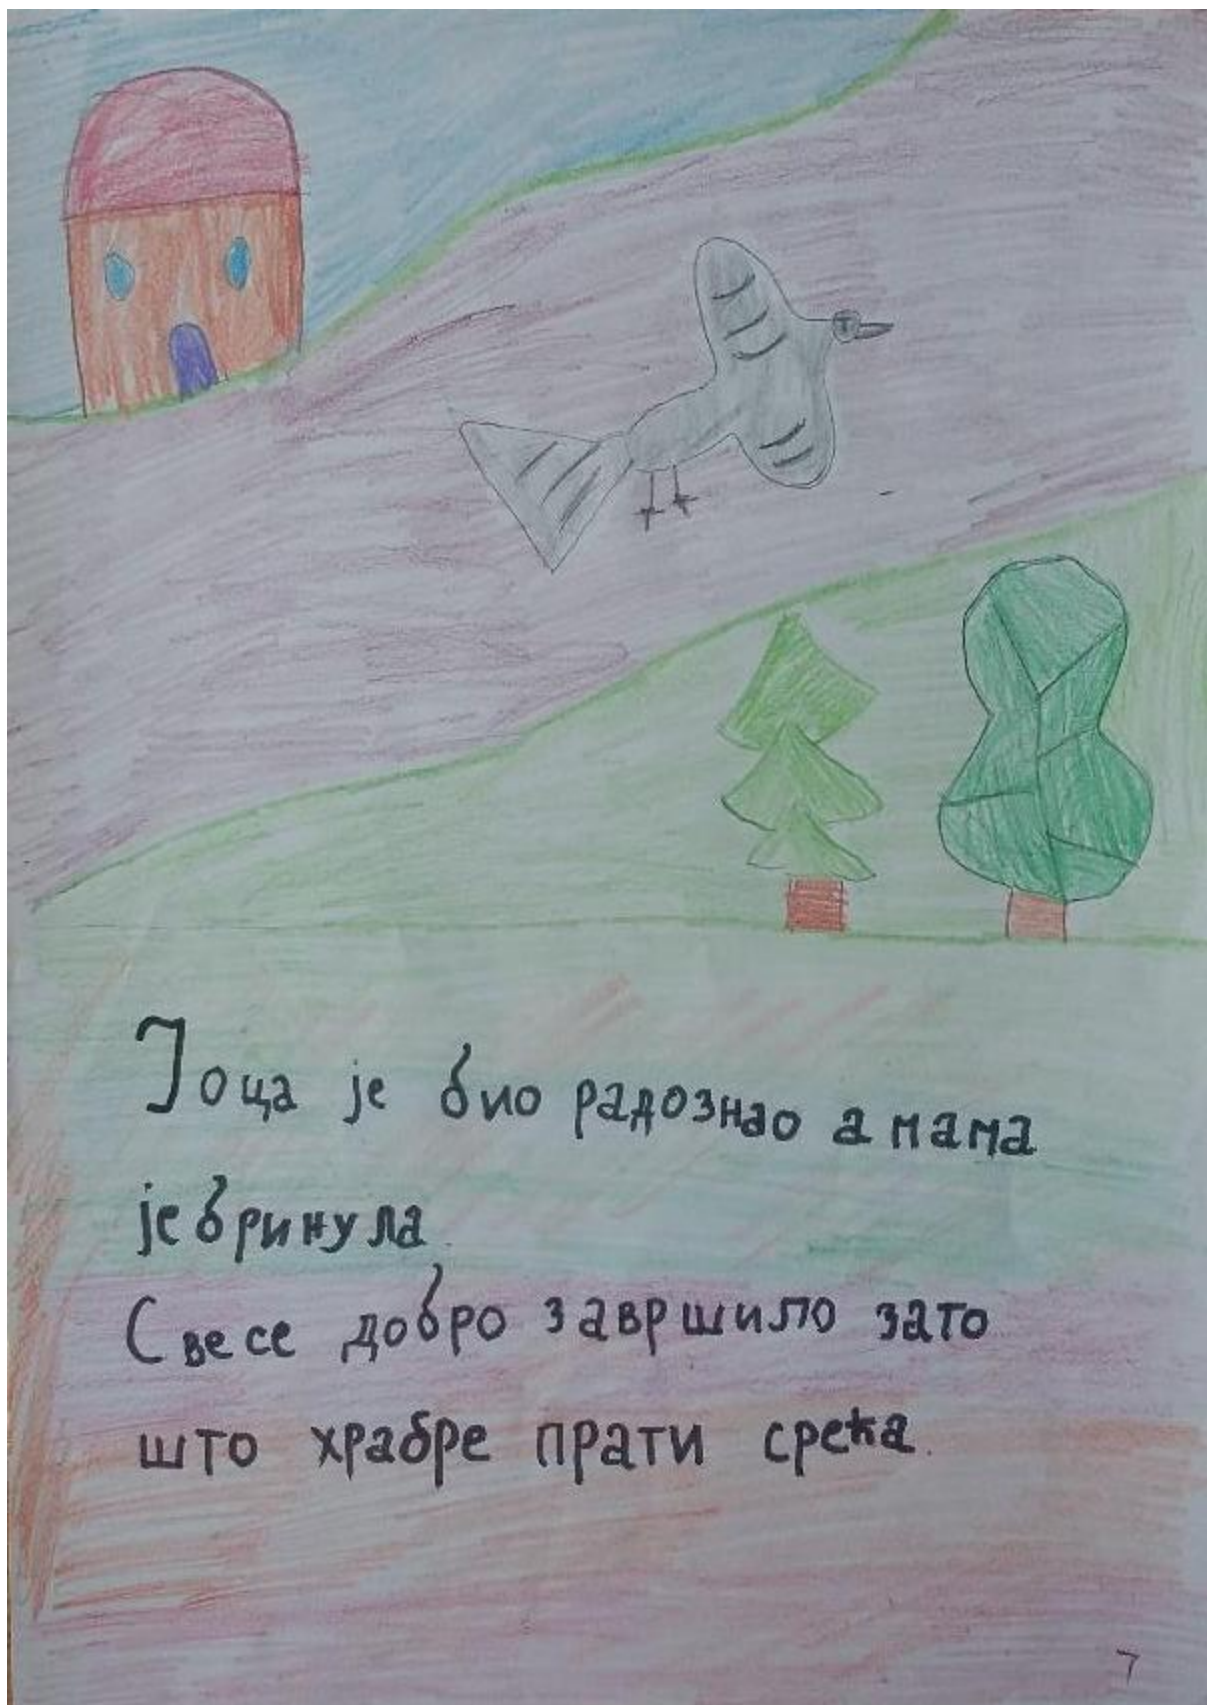 Јоца је био радознао а мама
је бринула.
Све се добро завршило зато
што храбре прати срећа.
7